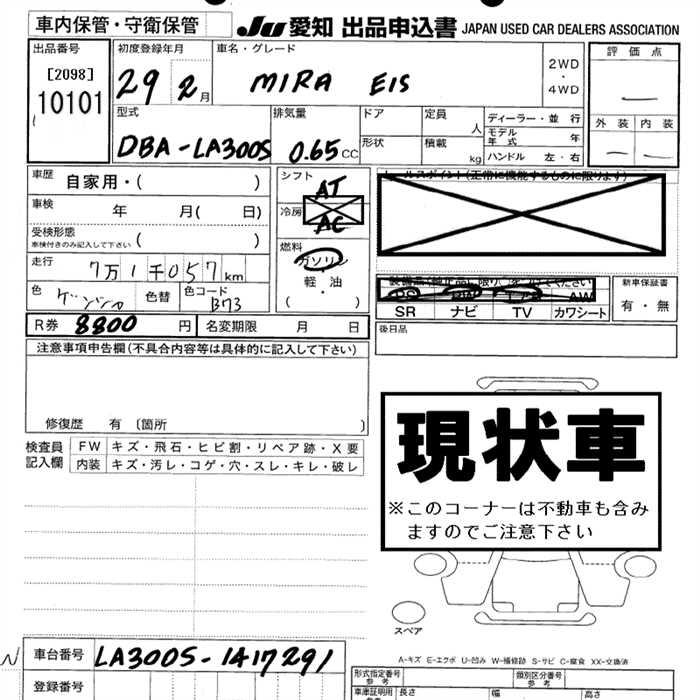 車内保管・守衛保管
JU 愛知 出品申込書 JAPAN USED CAR DEALERS ASSOCIATION
出品番号
[2098]
10101
初度登録年月
29 2月
車名・グレード
MIRA EIS
2WD
・
4WD
評価点
—
外装 内装
— —
型式
DBA-LA300S
排気量
0.65 CC
ドア
定員
人
形状
積載
kg
ディーラー・並行
モデル年式 年
ハンドル 左・右
車歴
自家用・( )
車検
年 月( 日)
受検形態
車検付きのみ記入して下さい ( )
走行
7万1千057km
色
色替
色コード
B73
シフト
AT
冷房
AC
燃料
ガソリン
・
軽・油
( ・ )
セールスポイント(正常に機能するものに限ります)
SR ナビ TV カワシート
AW
新車保証書
有・無
R券 8800 円
名変期限 月 日
後日品
注意事項申告欄(不具合内容等は具体的に記入して下さい)
修復歴 有 〔箇所 〕
検査員記入欄
FW キズ・飛石・ヒビ割・リペア跡・X要
内装 キズ・汚レ・コゲ・穴・スレ・キレ・破レ
現状車
※このコーナーは不動車も含み
ますのでご注意下さい
スペア
A-キズ E-エクボ U-凹み W-補修跡 S-サビ C-腐食 XX-交換済
N
車台番号 LA300S-1417291
登録番号
形式指定番号
参考
類別区分番号
参考
車庫証明用
参考
長さ
幅
高さ